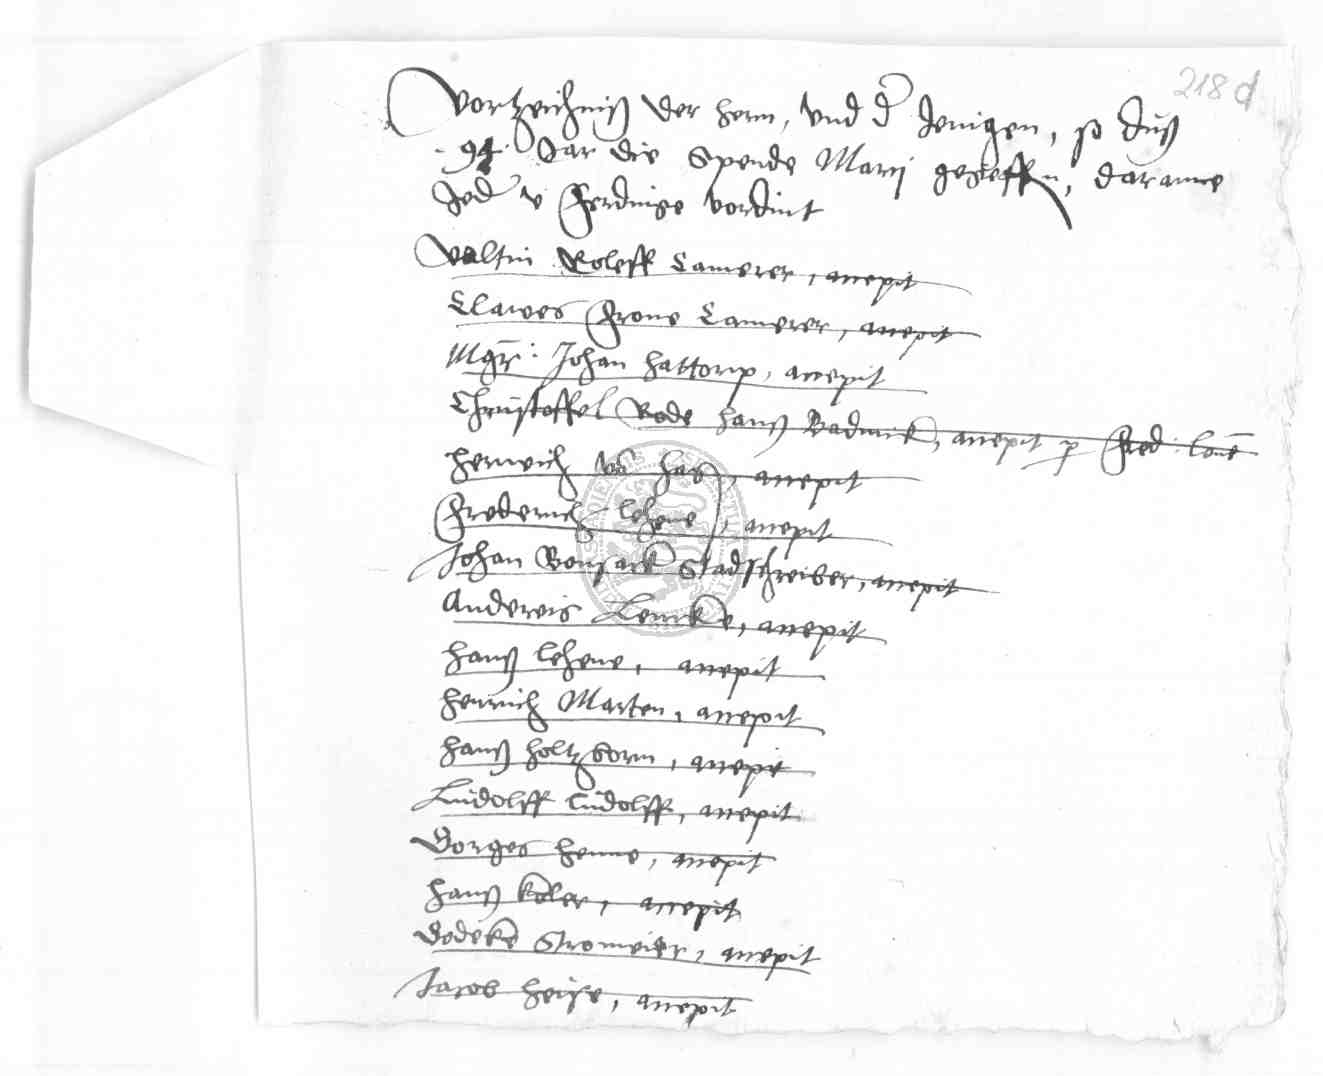 218 d
Vortzeichniß der hern, vnd d Jenigen, so duß
94 Jar die Spende Marij gegeffen, daranne
Jed v ferdinge vordint
Valtin Roleff Camerer, accepit
Clawes frone Camerer, accepit
Mgr: Johan hattorp, accepit
Christoffel Rode hanß accepit p fred: lone
henrich vo haß, accepit
Frederich lehene, accepit
Johan Bonsack Stadschreiber, accepit
Andereis Lencke, accepit
hanß lehene, accepit
henrich Marten, accepit
hanß holtzborn, accepit
Ludolff Ludolff, accepit
Borges henne, accepit
hanß koler, accepit
Bodeke Stromeier, accepit
Jacob heise, accepit